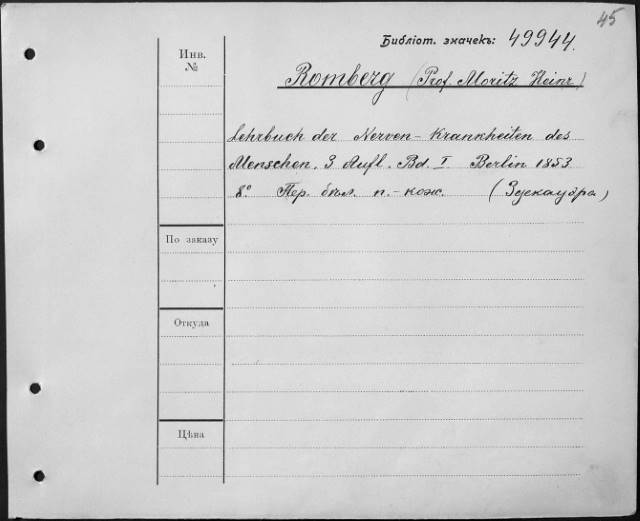 45
Библіот. значекъ: 49944.
Инв.
№
Romberg (Prof. Moritz Heinr.)
Lehrbuch der Nerven-Krankheiten des
Menschen. 3 Aufl. Bd. I. Berlin 1853
8° Пер. бѣл. п.-кож. (Здекауэра)
По заказу
Откуда
Цѣна